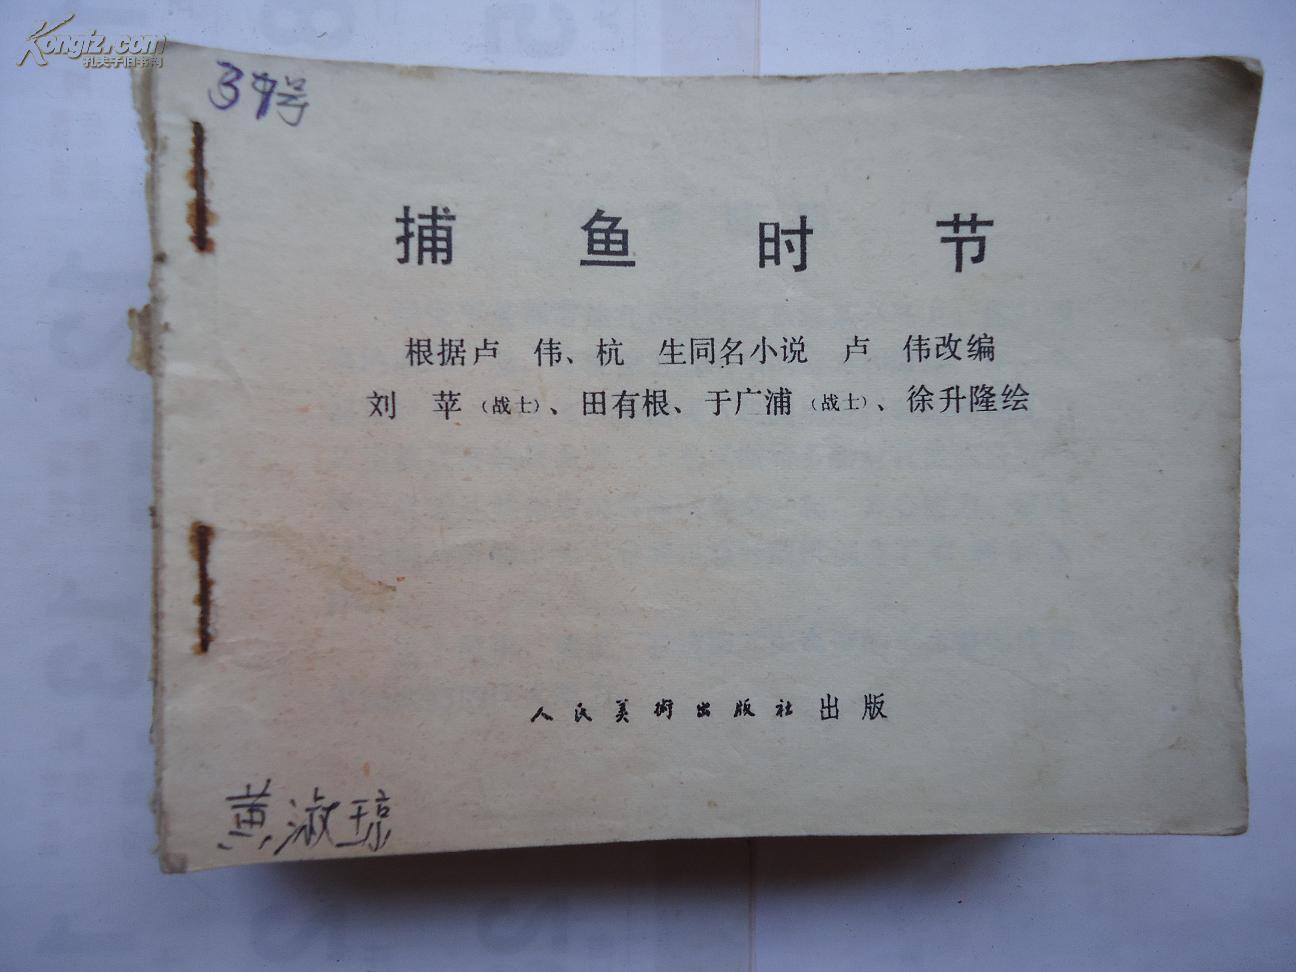 Kongfz.com
孔夫子旧书网
39号
捕鱼时节
根据卢 伟、杭 生同名小说 卢 伟改编
刘 苹（战士）、田有根、于广浦（战士）、徐升隆绘
人民美術出版社出版
黄淑琼